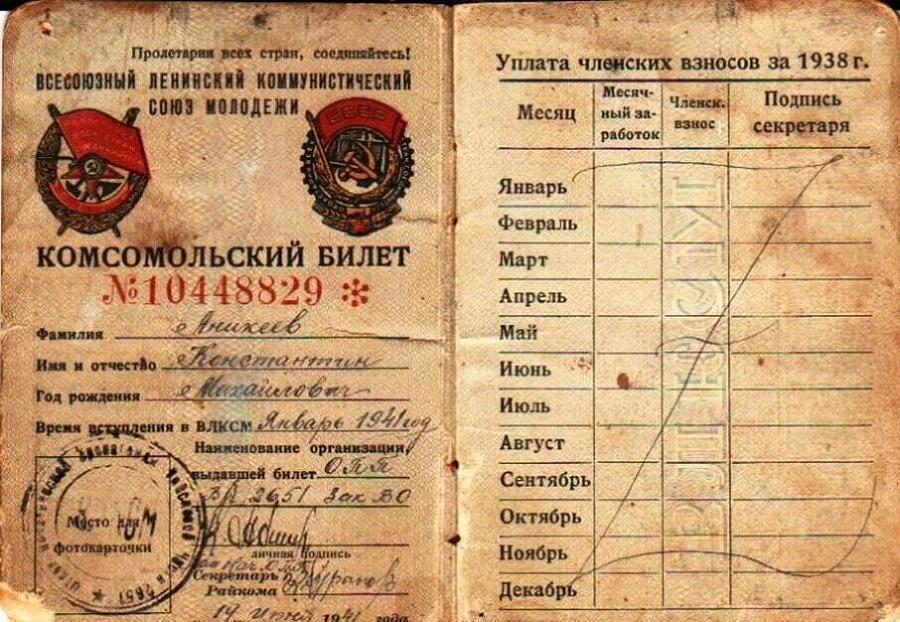 Пролетарии всех стран, соединяйтесь!
ВСЕСОЮЗНЫЙ ЛЕНИНСКИЙ КОММУНИСТИЧЕСКИЙ
СОЮЗ МОЛОДЕЖИ
СССР
КОМСОМОЛЬСКИЙ БИЛЕТ
№10448829
Фамилия Аникеев
Имя и отчество Константин
Год рождения Михайлович
Время вступления в ВЛКСМ Январь 1941 год
Наименование организации,
выдавшей билет ОПП
2651 Зак ВО
Место для
фотокарточки
личная подпись
Секретарь
Райкома
14 1941 года
Уплата членских взносов за 1938 г.
Месяц
Месяч-
ный за-
работок
Членск.
взнос
Подпись
секретаря
Январь
Февраль
Март
Апрель
Май
Июнь
Июль
Август
Сентябрь
Октябрь
Ноябрь
Декабрь